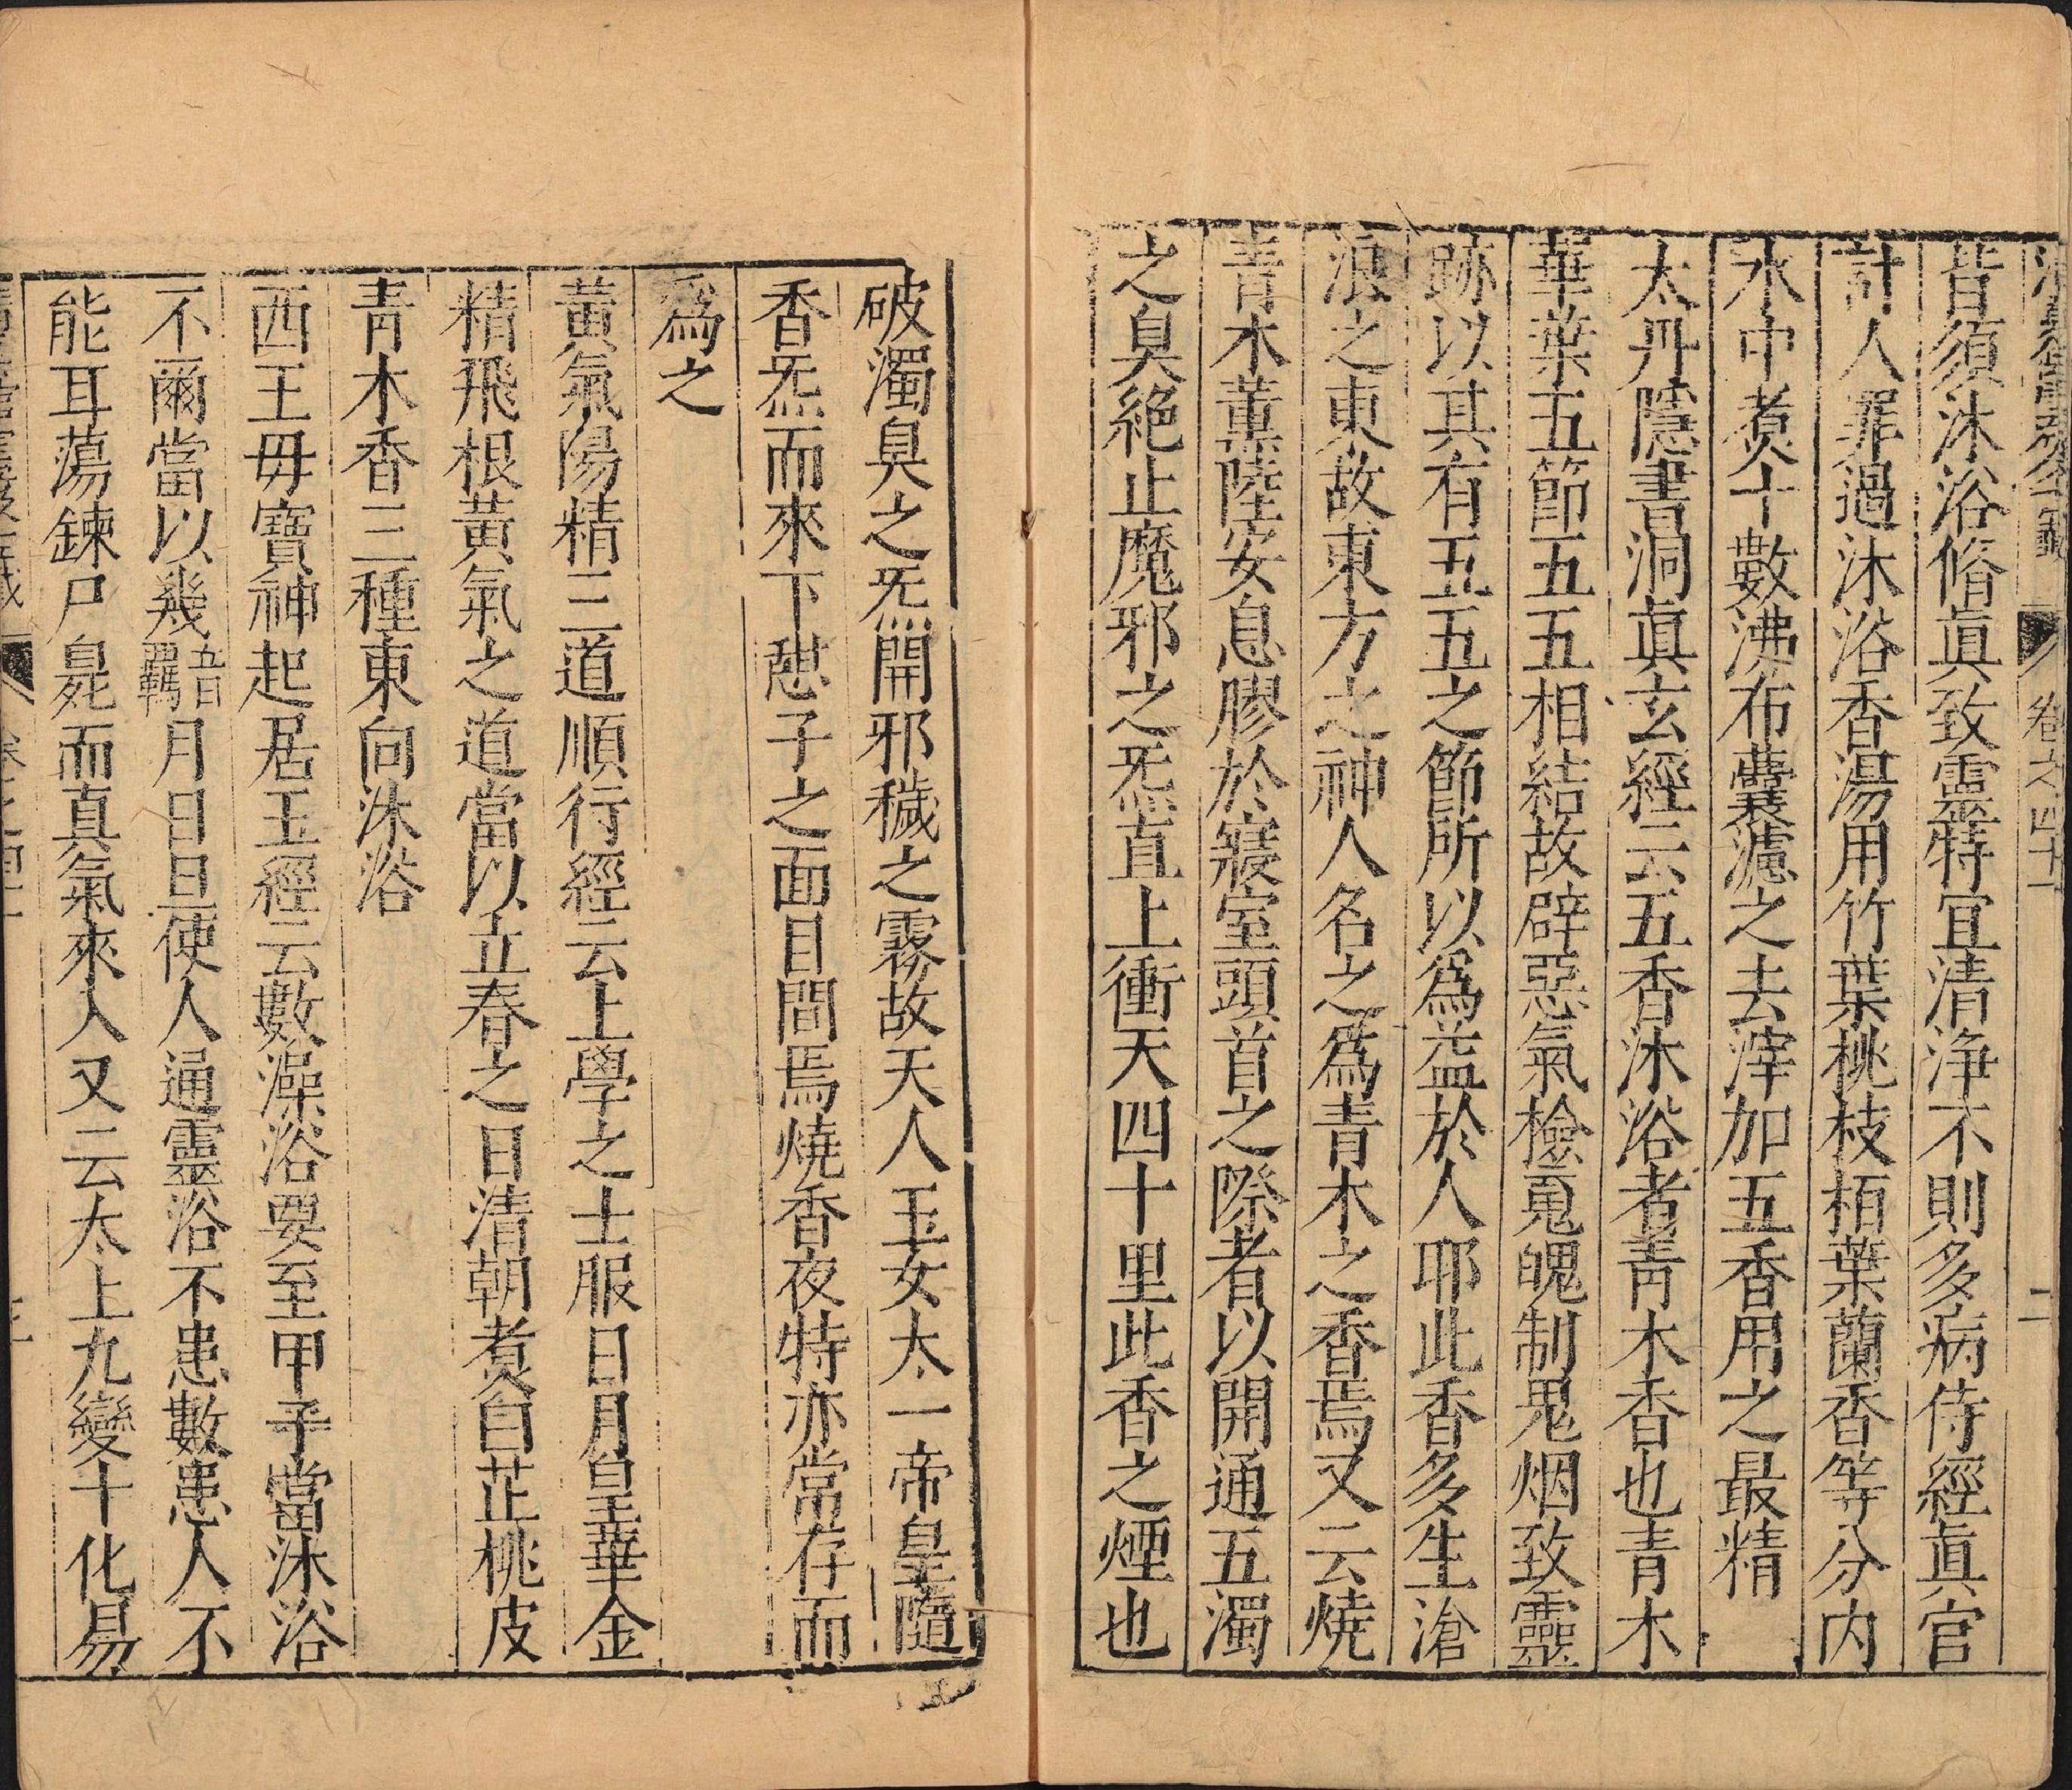 卷之四十一
二
皆須沐浴脩真致靈特宜清淨不則多病侍經真官
計人罪過沐浴香湯用竹葉桃枝栢葉蘭香等分内
水中煮十數沸布囊濾之去滓加五香用之最精
太丹隱書洞真玄經云五香沐浴者青木香也青木
華葉五節五五相結故辟惡氣檢䰟魄制鬼烟致靈
跡以其有五五之節所以爲益於人耶此香多生滄
浪之東故東方之神人名之爲青木之香焉又云燒
青木薰陸安息膠於寢室頭首之際者以開通五濁
之臭絶止魔邪之炁直上衝天四十里此香之煙也
破濁臭之炁開邪穢之霧故天人玉女太一帝皇隨
香炁而來下憇子之面目間焉燒香夜特亦常存而
爲之
黃氣陽精三道順行經云上學之士服日月皇華金
精飛根黃氣之道當以立春之日清朝煑白芷桃皮
青木香三種東向沐浴
西王毋寶神起居玉經云數澡浴要至甲子當沐浴
不爾當以幾月日旦使人通靈浴不患數患人不
能耳蕩鍊尸臰而真氣來入又云太上九變十化易